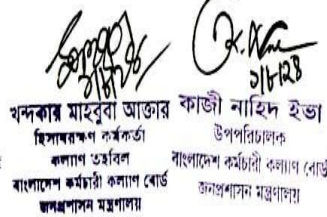 ২/৮/২৪
খন্দকার মাহবুবা আক্তার
হিসাবরক্ষণ কর্মকর্তা
কল্যাণ তহবিল
বাংলাদেশ কর্মচারী কল্যাণ বোর্ড
জনপ্রশাসন মন্ত্রণালয়
কাজী নাহিদ ইভা
উপপরিচালক
বাংলাদেশ কর্মচারী কল্যাণ বোর্ড
জনপ্রশাসন মন্ত্রণালয়